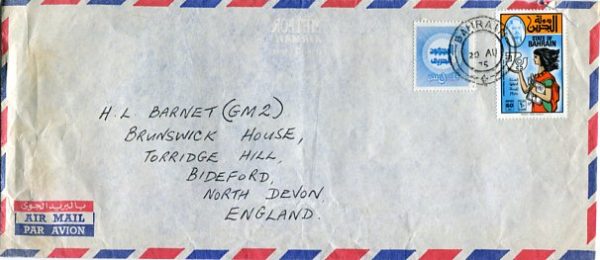 BAHRAIN
20 AU
75
دولة البحرين
STATE OF
BAHRAIN
60
H. L BARNET (GM2)
BRUNSWICK HOUSE,
TORRIDGE HILL,
BIDEFORD,
NORTH DEVON.
ENGLAND.
بالبريد الجوى
AIR MAIL
PAR AVION